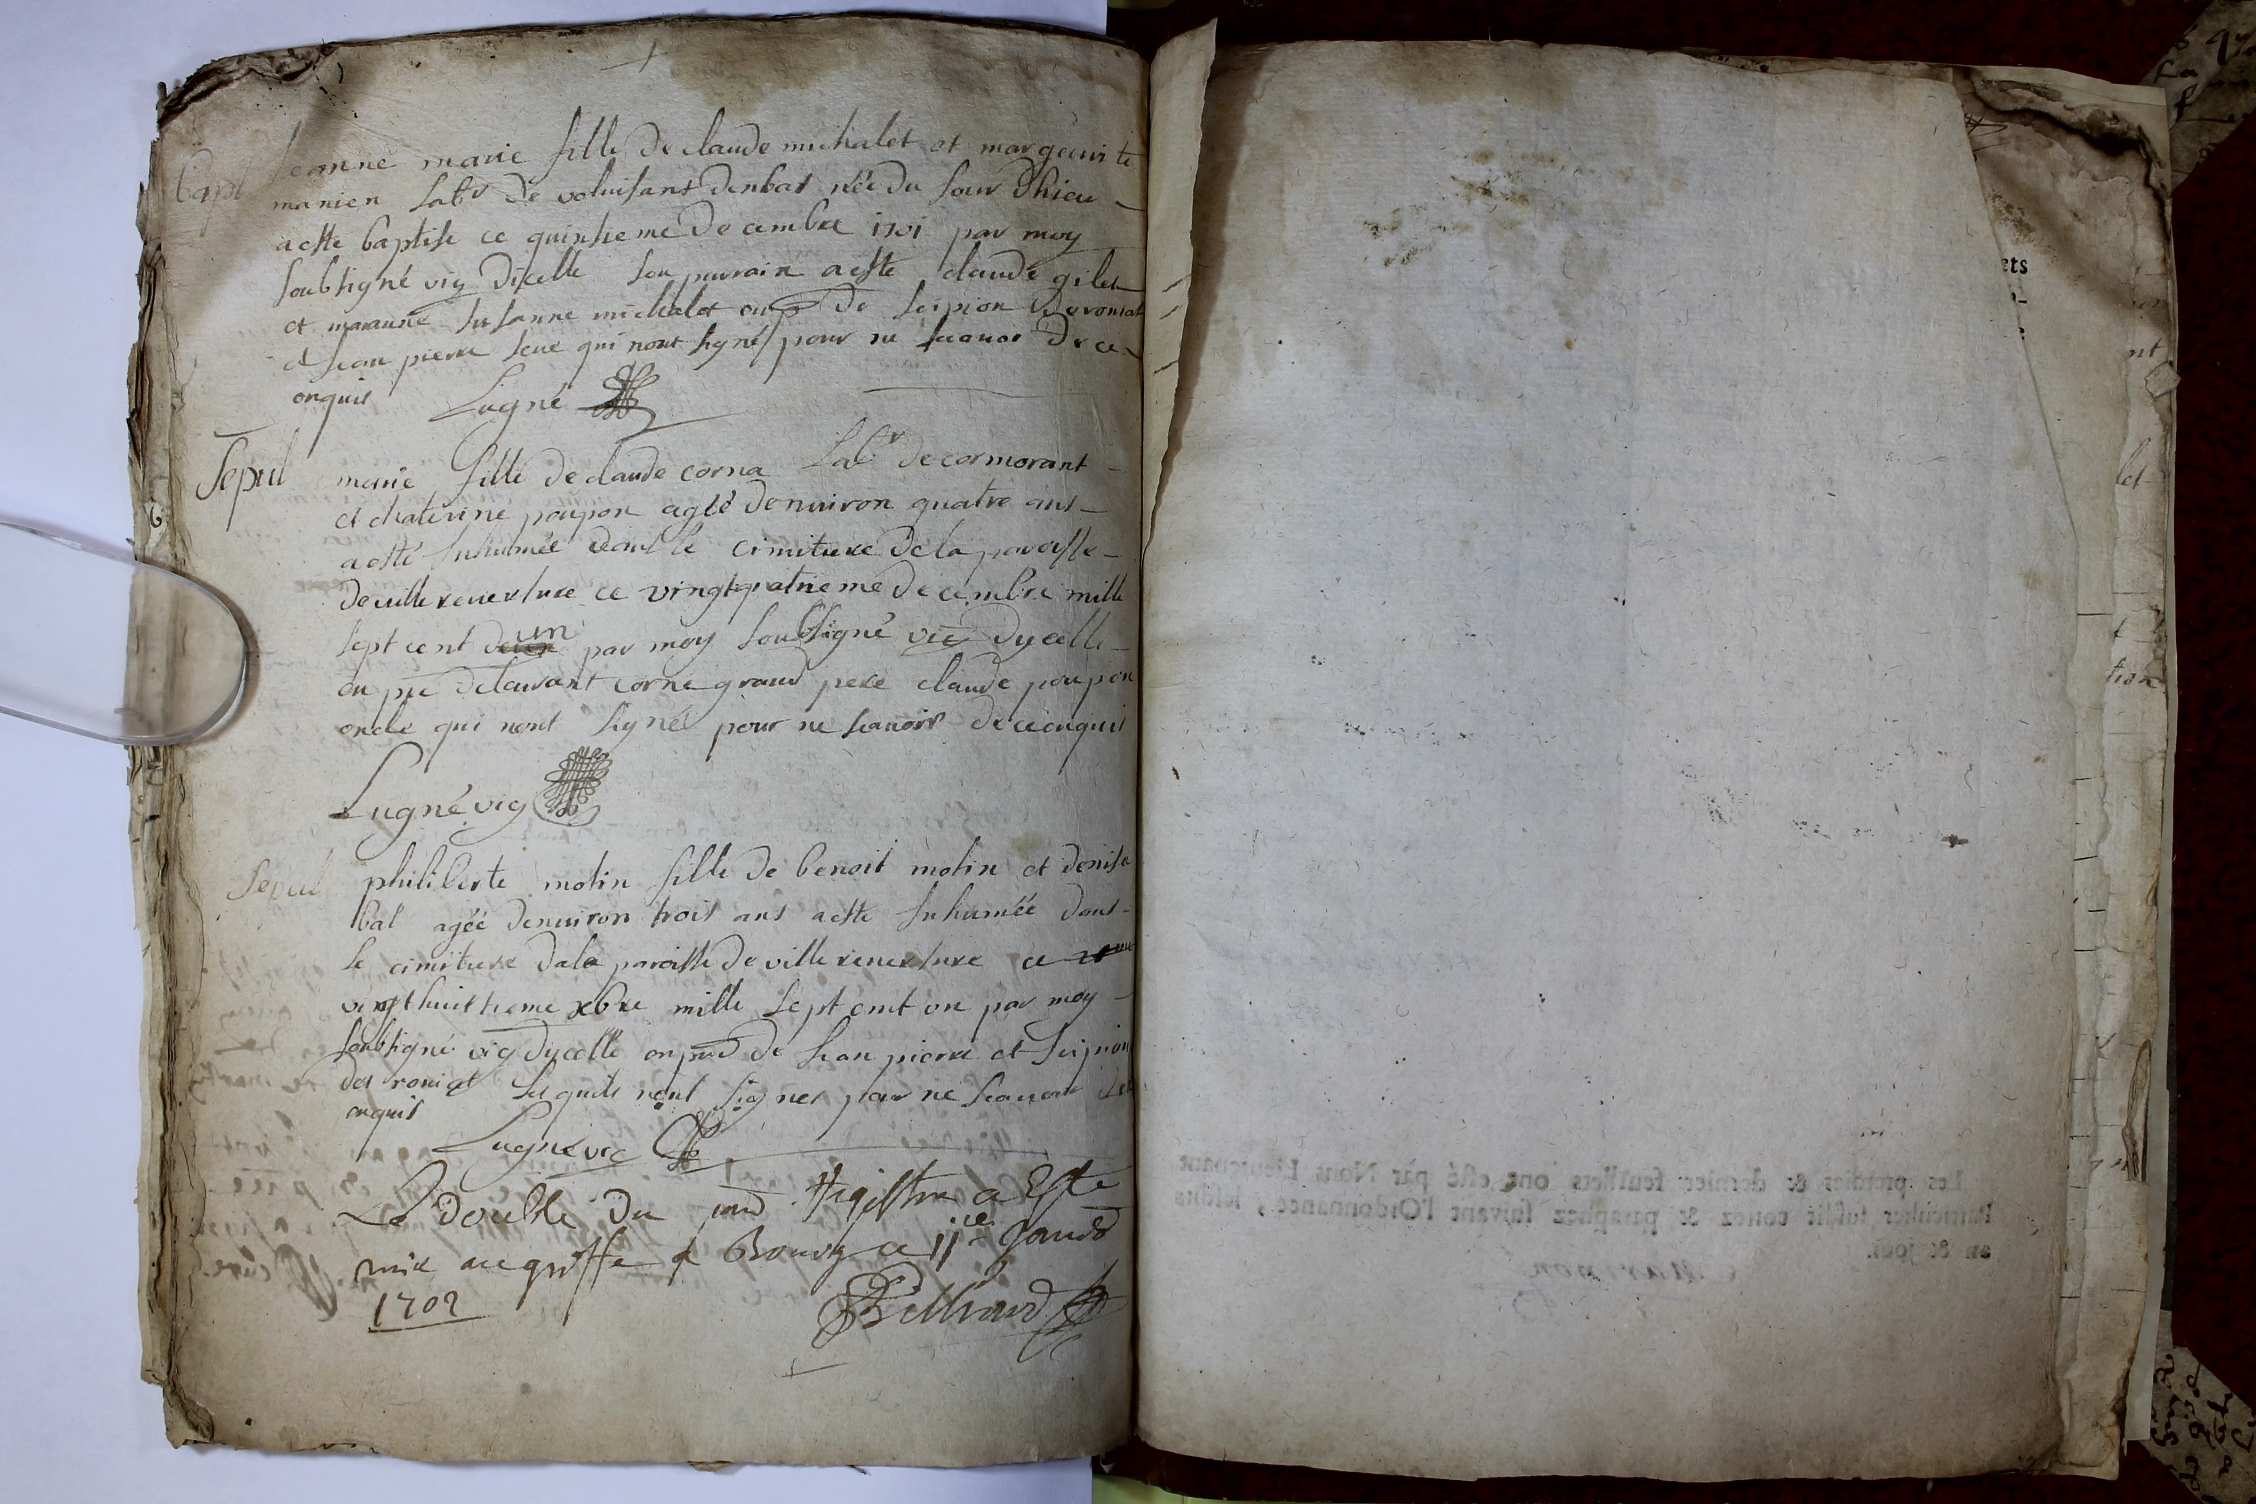 Bapt Jeanne marie fille de claude michalet et margueritte
manien lab.r de voluisant denbas née du jour d'hieu
a esté baptise ce quinsieme decembre 1701 par moy
soubsigné vic dicelle son parrain a esté claude gilet
et maraine susanne michalet en p de scipion deroniat
et jean pierre qui nont signé pour ne scauoir de ce
enquis Lugné
Sepul marie fille de claude corna Lab.r de cormorant
et chaterine poupon agée denuiron quatre ans
a esté Inhumée dans le cimitiere de la paroisse
de villereuersure ce vingtquatrieme decembre mille
sept cent un par moy soubsigné vic dycelle
en pre de laurant corna grand pere claude poupon
oncle qui nont signé pour ne scauoir de ce enquis
Lugné vic
Sepul philiberte motin fille de benoit motin et denise
bal agée denuiron trois ans a esté Inhumée dans
le cimitiere dela paroisse de villereuersure ce
vingthuittieme xbre mille sept cent un par moy
soubsigné vic dycelle en pred de jean pierre et scipion
deroniat lesquels nont signer pour ne scauoir
enquis
Lugné vic
Le double du pnd Registre a Este
mis au greffe a Bourg ce 11.e Janv
1702
Les premier & dernier feuillets ont esté par Nous Lieutenant
Particulier susdit cottez & paraphez suivant l'Ordonnance, lesdits
an & jour.
ets
nt
let
tion